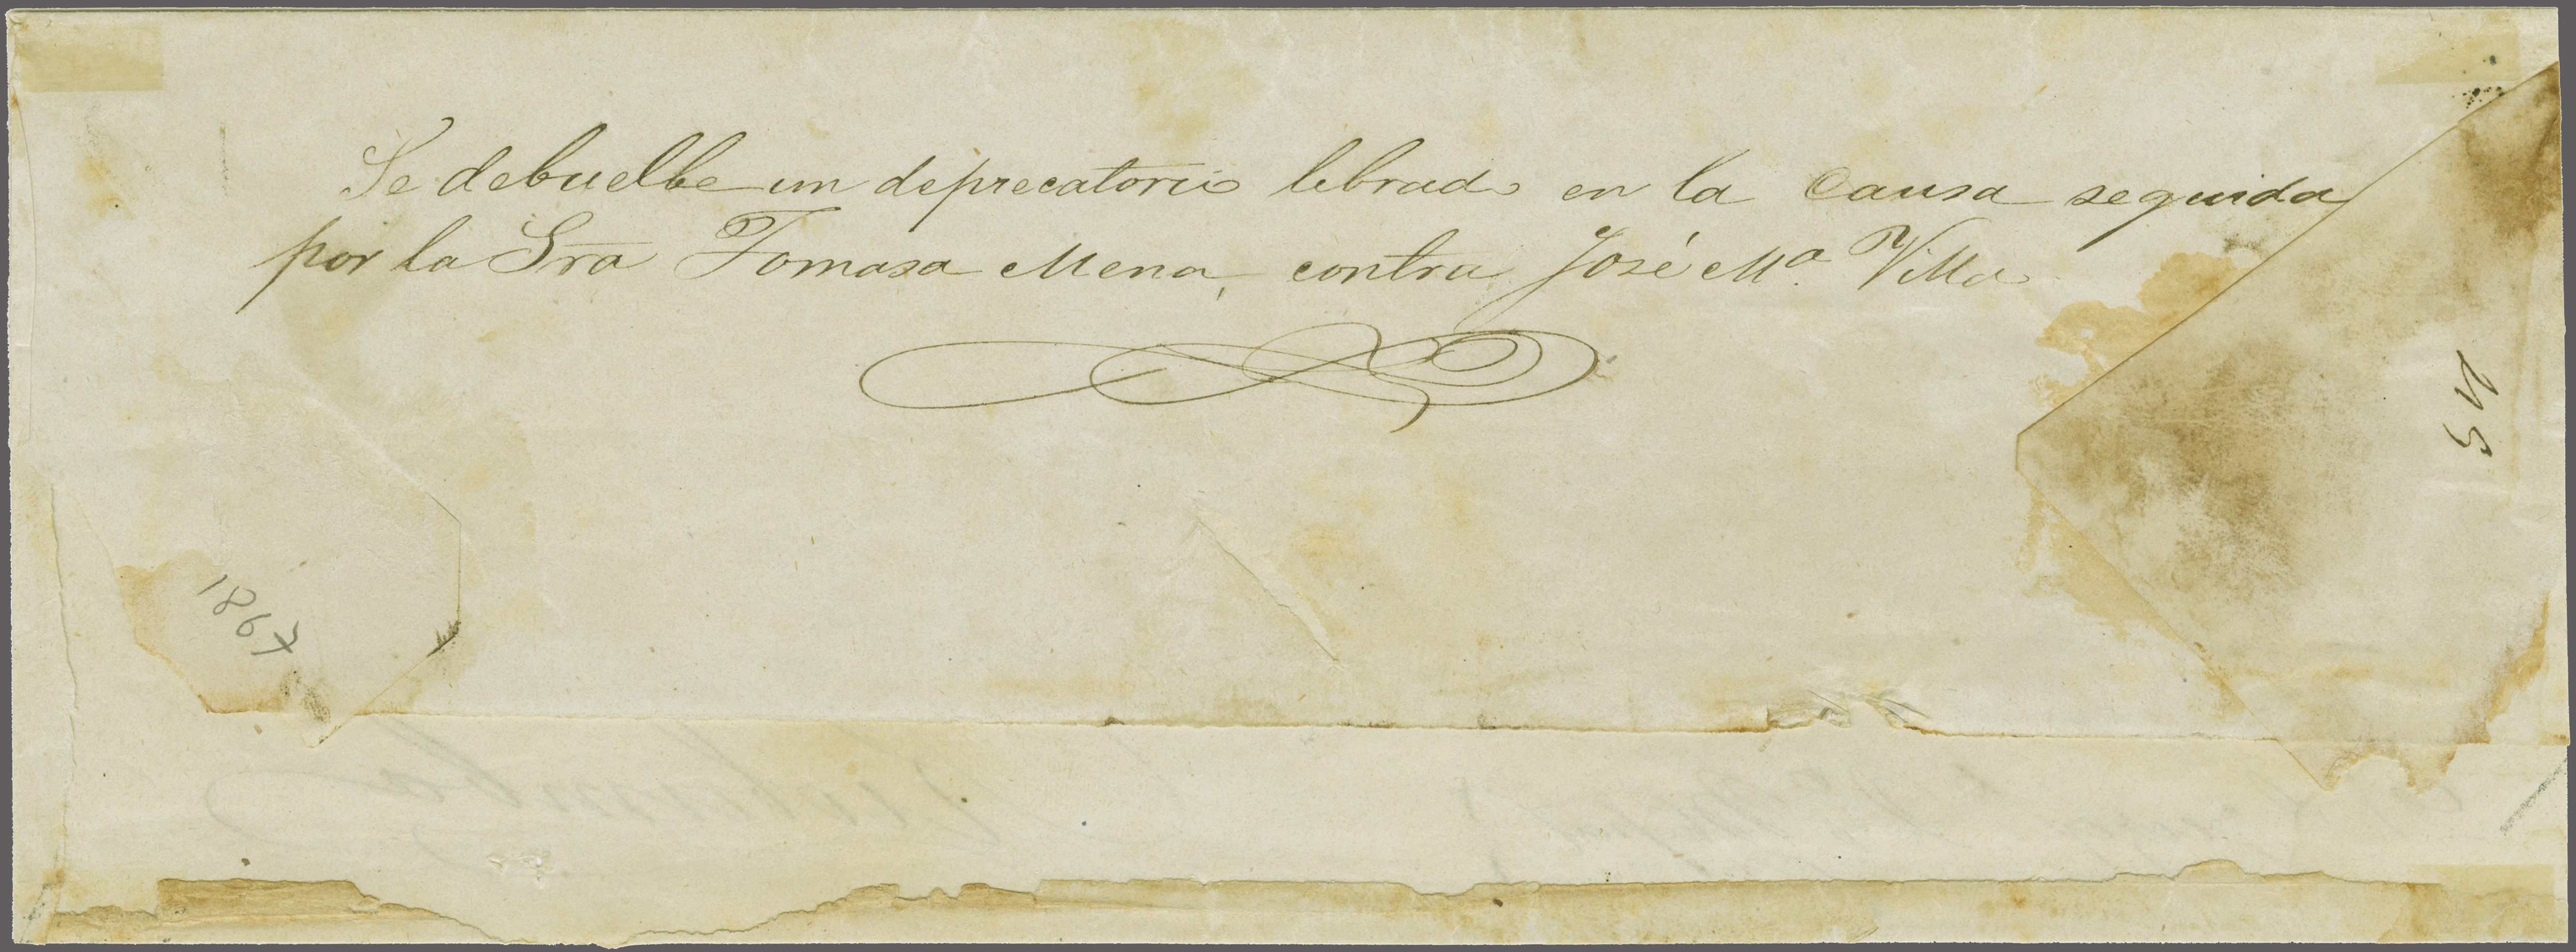 Se debuelbe un deprecatorio librado en la causa seguida
por la Sra Tomasa Mena, contra José Mª Villa
1867